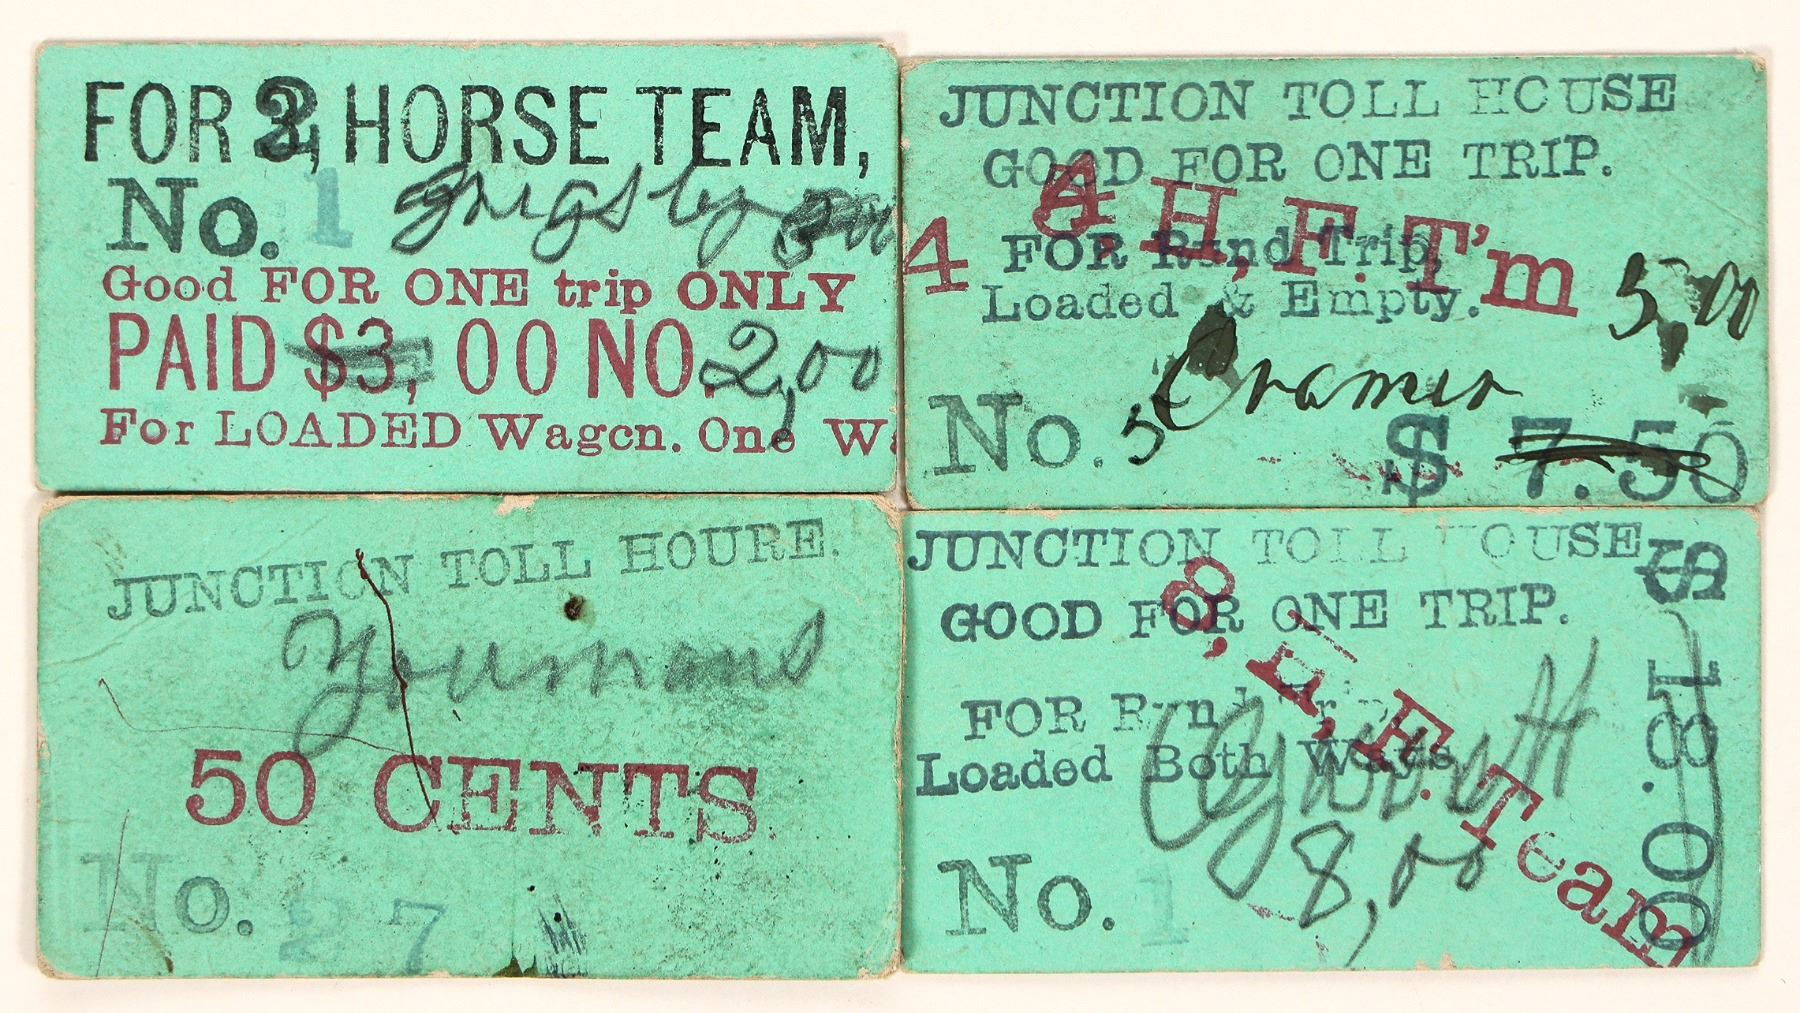 FOR 2, HORSE TEAM,
No. 1 Grigsby
Good FOR ONE trip ONLY
PAID $3, 00 NO. 2,00
For LOADED Wagcn. One Wa
JUNCTION TOLL HOUSE
GOOD FOR ONE TRIP.
4 4, H, F. T'm
FOR Rund Trip,
Loaded & Empty. 5,00
Cramer
No. 5
$ 7.50
JUNCTION TOLL HOURE.
Youmans
50 CENTS.
No. 27
JUNCTION TOLL HOUSE
GOOD FOR ONE TRIP.
8, E, F. Team
FOR Rund Trip
Loaded Both Ways
8,00
No. 1
$ 18.00